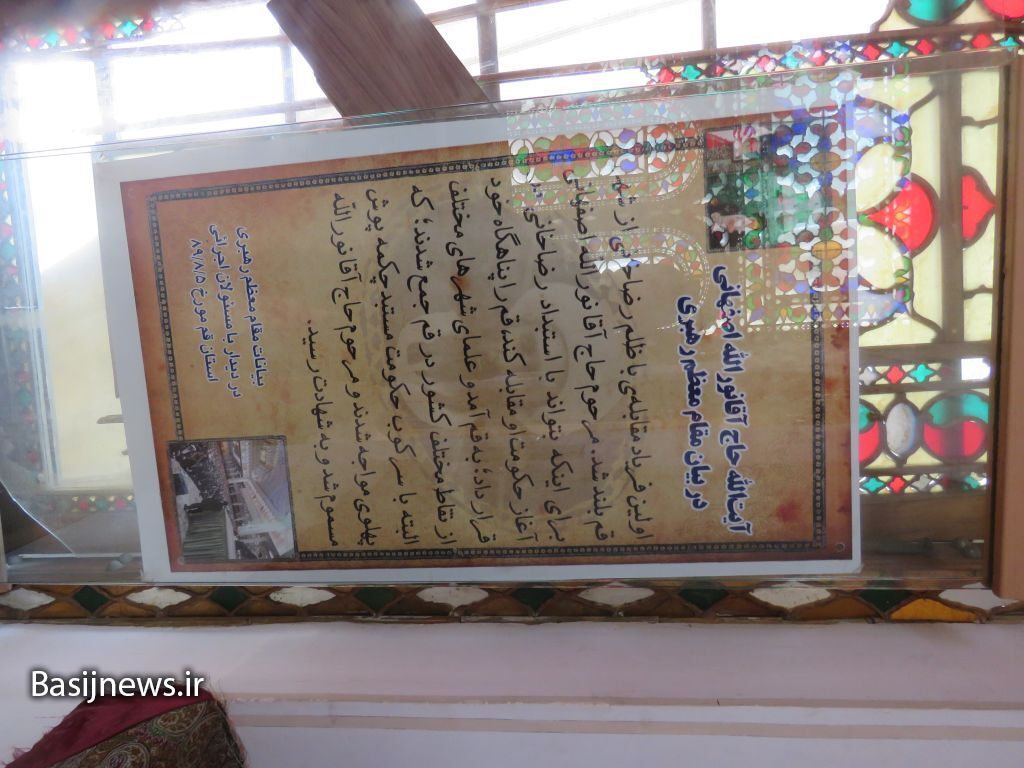 آیت‌الله حاج آقا نور الله اصفهانی
در بیان مقام معظم رهبری
اولین فریاد مقابله‌ی با ظلم رضاخانی از شهر
قم بلند شد. مرحوم حاج آقا نورالله اصفهانی
برای اینکه بتواند با استبداد رضاخانی در
آغاز حکومت او مقابله کند، قم را پناهگاه خود
قرار داد؛ به قم آمد و علمای شهرهای مختلف
از نقاط مختلف کشور در قم جمع شدند؛ که
البته با سرکوب حکومت مستبد چکمه پوش
پهلوی مواجه شدند و مرحوم حاج آقا نورالله
مسموم شد و به شهادت رسید.
بیانات مقام معظم رهبری
در دیدار با مسئولان اجرائی
استان قم مورخ ۸۹/۸/۵
Basijnews.ir